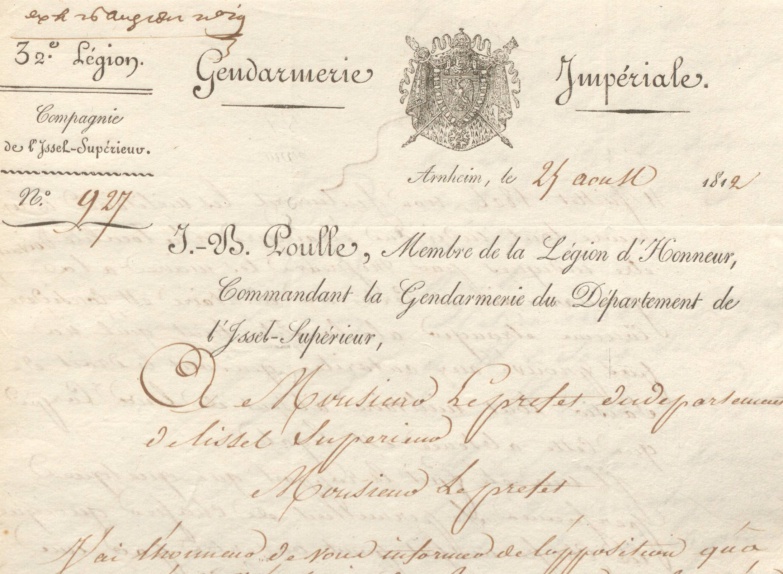 32e Légion.
Gendarmerie Impériale.
Compagnie
de l'Issel-Supérieur.
Arnheim, le 25 aoust 1812
N.° 927
J.-B. Poulle, Membre de la Légion d'Honneur,
Commandant la Gendarmerie du Département de
l'Issel-Supérieur,
A Monsieur Le prefet du departement
de lissel Superieur
Monsieur Le prefet
J'ai l'honneur de vous informer de lopposition qu'a